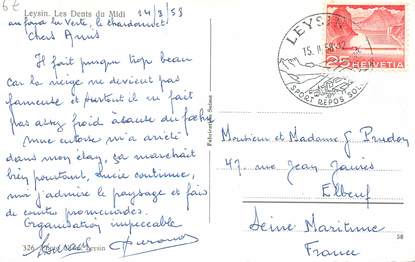 Leysin. Les Dents du Midi
14/2/58
au fond la Verte, le chardonnet
Chers Amis
Il fait presque trop beau
car la neige ne devient pas
fameuse et surtout il ne fait
pas assez froid à cause du
une entorse m'a arrêté
dans mon élan, ça marchait
bien pourtant, Lucie continue,
moi j'admire le paysage et fais
de courtes promenades.
Organisation impeccable
326
Leysin
LEYSIN
15. II. 58-12
SPORT REPOS SOLEIL
25 HELVETIA
Monsieur et Madame G. Prudon
47, rue Jean Jaurès
Elbeuf
Seine Maritime
France
58